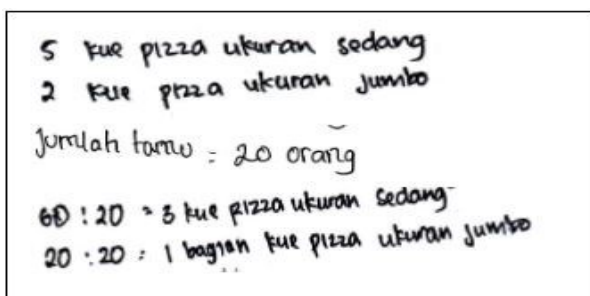 5 kue pizza ukuran sedang
2 kue pizza ukuran jumbo
Jumlah tamu = 20 orang
60 : 20 = 3 kue pizza ukuran sedang
20 : 20 = 1 bagian kue pizza ukuran jumbo